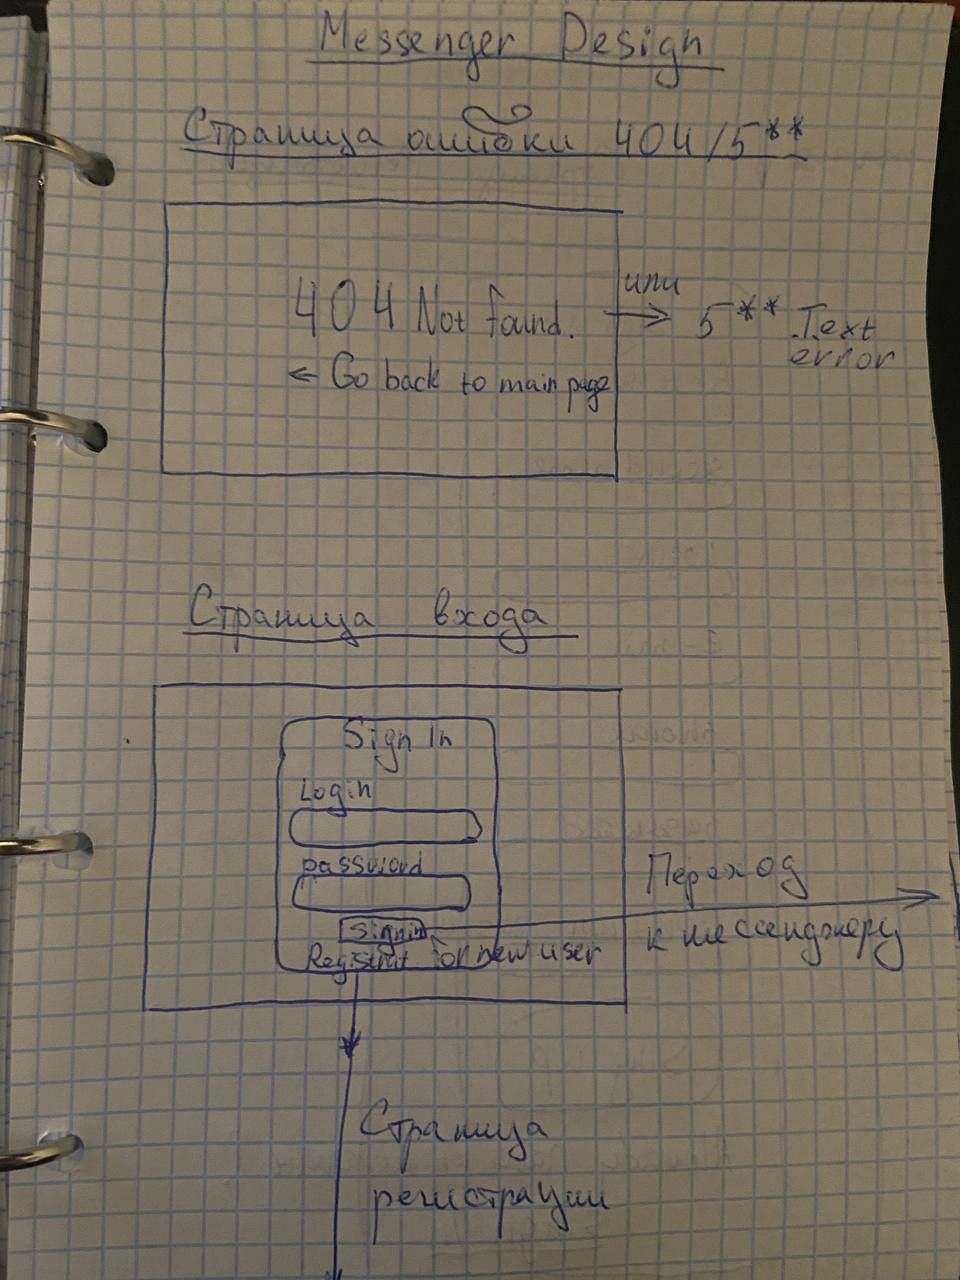 Messenger Design
Страница ошибки 404/5**
404 Not found.
← Go back to main page
или
→ 5** Text
error
Страница входа
Sign In
Login
password
Sign in
for new user
Переход
к мессенджеру
Страница
регистрации